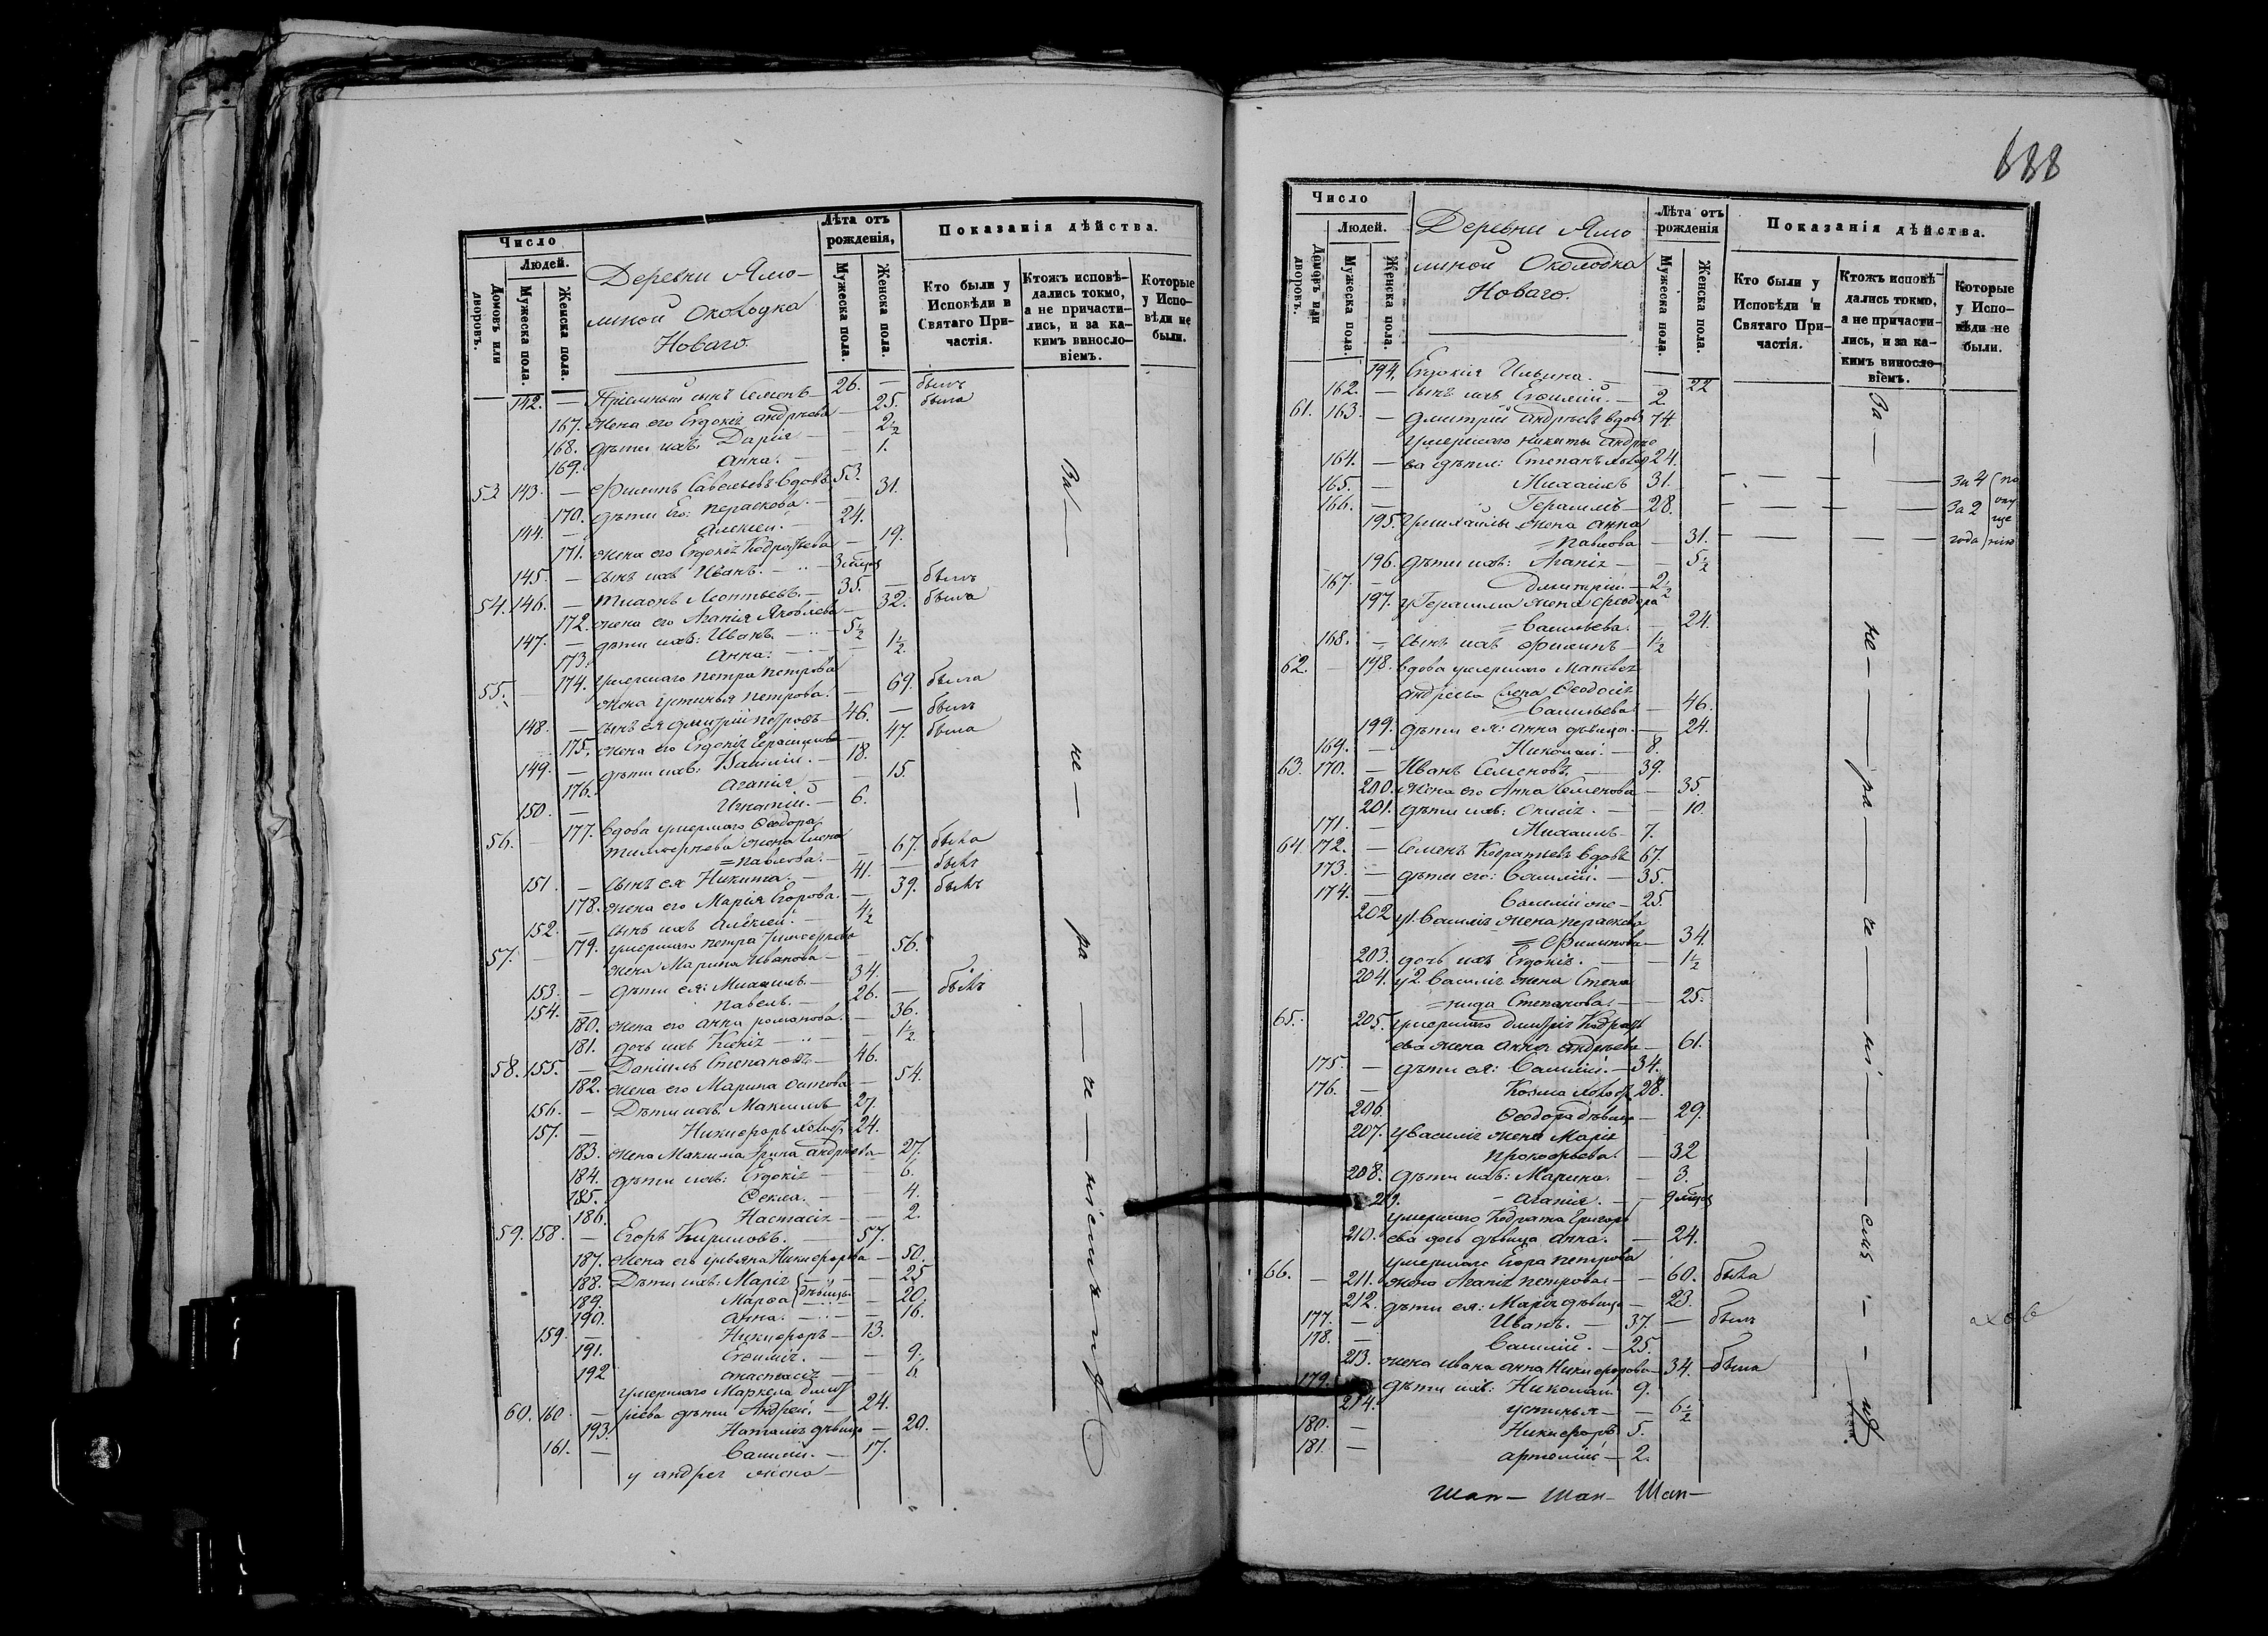 Число
Людей.
Домовъ или дворовъ.
Мужеска пола.
Женска пола.
Деревни Ямо-
линой Околодка
Новаго.
Лѣта отъ
рожденія,
Мужеска пола.
Женска пола.
Показанія дѣйства.
Кто были у
Исповѣди и
Святаго При-
частія.
Ктожъ исповѣ-
дались токмо,
а не причасти-
лись, и за ка-
кимъ виносло-
віемъ.
Которые
у Испо-
вѣди не
были.
142. — Пріемный сынъ Семенъ — 26. — былъ
167. жена его Евдокія андрѣева — 25. была
168. дѣти ихъ: Дарія — — 2½
169. анна. — — 1.
53 143. — Филипъ Савельевъ вдовъ 53.
170. дѣти его: пераскова — — 31.
144. — алексѣй. — 24.
171. жена его Евдокія Кодратьева — 19.
145. — сынъ ихъ Иванъ. — 3 мѣсяца
54. 146. — Леонтьевъ. — 35. — былъ
172. жена его Агапія Яковлева — 32. была
147. — дѣти ихъ: Иванъ — 5½
173. Анна. — — 1½
55. — 174. умершаго петра петрова
жена устинья петрова. — 69. была
148. — сынъ ея дмитрій петровъ — 46. — былъ
175. жена его Евдокія Герасимова — 47. была
149. — дѣти ихъ: Василій. — 18.
176. агапія — — 15.
150. — Игнатій. — 6.
56. — 177. вдова умершаго Ѳеодора
тимоѳеева жена Елена
=павлова. — — 67. была
151. — сынъ ея Никита. — 41. — былъ
178. жена его Марія Егорова. — 39. былъ
152. — сынъ ихъ алексѣй. — 4½
57. — 179. умершаго петра тимоѳеева
жена Марина Иванова — — 56.
153. — дѣти ея: Михаилъ — 34.
154. — павелъ. — 26. — былъ
180. жена его анна романова. — 36.
181. дочь ихъ — 1½
58. 155. — Даніилъ Степановъ — 46.
182. жена его Марина осипова — 54.
156. — Дѣти ихъ: Максимъ 27.
157. — Никифоръ 24.
183. жена Максима Ирина андрѣева — 27.
184. дѣти ихъ: Евдокія — 6.
185. Ѳекла. — — 4.
186. Настасія — — 2.
59. 158. — Егоръ Кириловъ. — 57.
187. жена его ульяна Никифорова — 50.
188. Дѣти ихъ: Марія — 25
189. Марѳа дѣвицы — 20.
190. Анна. — 16.
159. — Никифоръ — 13.
191. Евѳимія. — — 9.
192 анастасія — — 6.
умершаго Маркела дмит
60. 160. — ріева дѣти Андрей. — 24.
193. Наталія дѣвица — 20.
161. — Василій. — 17.
у андрея жена —
За — не — ра — че — ніемъ
688
Число
Людей.
Домовъ или дворовъ.
Мужеска пола.
Женска пола.
Деревни Ямо
линой Околодка
Новаго.
Лѣта отъ
рожденія
Мужеска пола.
Женска пола.
Показанія дѣйства.
Кто были у
Исповѣди и
Святаго При-
частія.
Ктожъ исповѣ-
дались токмо,
а не причасти-
лись, и за ка-
кимъ виносло-
віемъ.
Которые
у Испо-
вѣди не
были.
194. Евдокія Ильина. — — 22
162. — сынъ ихъ Евѳимій. — 2
61. 163. — дмитрій андрѣевъ вдовъ 74.
умершаго никиты андрѣе
164. — ва дѣти: Степанъ 24.
165. — Михаилъ 31. — — — За 4 по
166. — Герасимъ — 28. — — — За 2 опу
195. У михайлы жена анна
=павлова — 31. — — — года
196. дѣти ихъ: Агапія — — 5½
167. — Димитрій — 2½
197. у Герасима жена Ѳеодора
=васильева. — 24.
168. — сынъ ихъ Филипъ — 1½
62. — 198. вдова умершаго
андрѣева жена Ѳеодосія
васильева. — 46.
199. дѣти ея: анна дѣвица. — 24.
169. — Николай. — 8.
63. 170. — Иванъ Семеновъ. — 39.
200. жена его Анна Семенова — 35.
201. дѣти ихъ: — — 10.
171. — Михаилъ — 7.
64 172. — Семенъ Кодратьевъ вдовъ 67.
173. — дѣти его: Василій. — 35.
174. — Василій же — 25.
202 у 1. Василія жена пераскова
=Филипова — 34.
203. дочь ихъ Евдокія. — — 1½
204. у 2. Василія жена Степа
=нида Степанова. — — 25.
65. 205. умершаго дмитрія Кодрать
ева жена анна андрѣева — 61.
175. — дѣти ея: Василій. — 34.
176. — Козма 28.
206. Ѳеодора дѣвица — 29.
207. у василія жена Марія
прокофьева. — 32
208. дѣти ихъ: Марина. — 3.
209. — агапія. — — 9 мѣсяц
умершаго Кодрата Григорь
210. ева дочь дѣвица анна. — 24.
умершаго Егора петрова
66. — 211. жена Агапія петрова. — — 60. была
212. дѣти ея: Марія дѣвица — 23.
177. — Иванъ. — 37. — былъ
178. — Василій. — 25.
213. жена ивана анна Никифорова — 34. была
179. дѣти ихъ: Николай 9.
214. устинья — — 6½
180. — Никифоръ 5.
181. — артемій — 2.
За — не — ра — че — ні — емъ
Шап — Шап — Шап —